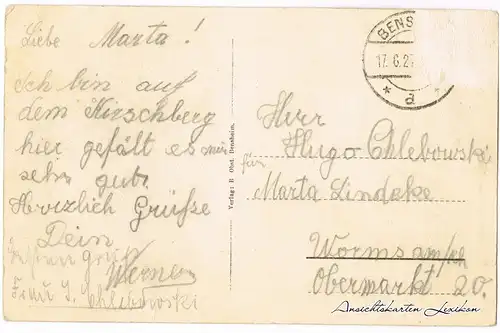 Liebe Marta!
Ich bin auf
dem Kirschberg
hier gefält es mir
sehr gut.
Herzlich Grüße
Dein
Werner
Chlebowski
Verlag: R. Obst, Bensheim.
BENS
17.6.27
* a
Herr
Hugo Chlebowski
für
Marta Lindeke
Worms a/Rh
Obermarkt 20.
Ansichtskarten Lexikon